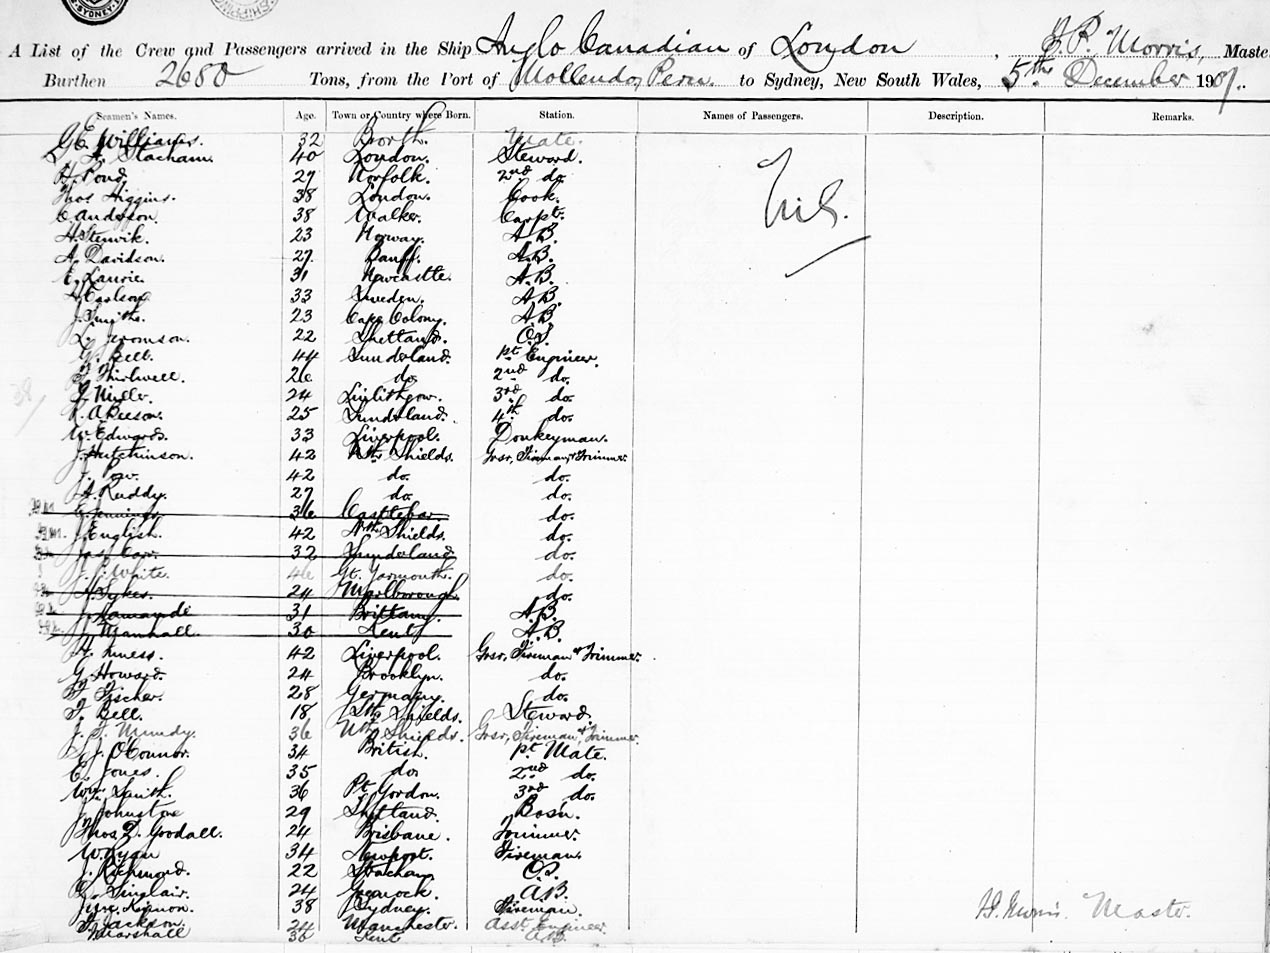 SYDNEY
A List of the Crew and Passengers arrived in the Ship Anglo Canadian of London, Morris, Maste
Burthen 2680 Tons, from the Port of Mollendo, Peru. to Sydney, New South Wales, 5th December 190
Seamen's Names. Age. Town or Country where Born. Station. Names of Passengers. Description. Remarks.
G E Williams. 32 Borth. Mate.
Stacham. 40 London. Steward.
H. Pond. 27 Norfolk. 2nd do.
Thos Higgins. 38 London. Cook.
C Anderson. 38 Walker. Carpt.
Nil.
H. Stenwik. 23 Norway. A.B.
A. Davidson. 27. Banff. A.B.
E. Laurie. 31 Newcastle. A.B.
Carlson 33 Sweden. A.B.
J. Smythe. 23 Cape Colony. A.B.
L. Jeromson. 22 Shetland. O.S.
G. Bell. 44 Sunderland. 1st Engineer.
Thirlwell. 26 do. 2nd do.
J. Miller. 24 Linlithgow. 3rd do.
Beeson. 25 Sunderland. 4th do.
W. Edwards. 33 Liverpool. Donkeyman.
J. Hutchinson. 42 Nth Shields. Grsr, Fireman & Trimmer.
J. 42 do. do.
A. Ruddy. 27 do. do.
36 Castlebar. do.
J. English. 42 Nth Shields. do.
Jas. 32 Sunderland do.
White. 46 Gt. Yarmouth. do.
Sykes. 24 Marlborough do.
J. 31 Brittany. A.B.
J. Marshall. 30 Kent A.B.
H. 42 Liverpool. Grsr, Fireman & Trimmer.
G. Howard. 24 Brooklyn. do.
F. Fischer. 28 Germany. do.
F. Bell. 18 Sth Shields. Steward.
J. F. Mundy. 36 Nth Shields. Grsr, Fireman, & Trimmer.
J. O'Connor. 34 British. 1st Mate.
E. Jones. 35 do. 2nd do.
Wm. Smith. 36 Pt. Gordon. 3rd do.
J. Johnston 29 Shetland. Bos'n.
Thos. Goodall. 24 Brisbane. Trimmer.
W. Ryan 34 Newport. Fireman.
J. Richmond. 22 Strachan, O.S.
Sinclair. 24 Greenock. A.B.
38 Sydney. Fireman
Jackson. 24 Manchester. Asst. Engineer.
Marshall 30 Kent A.B.
Morris. Master.